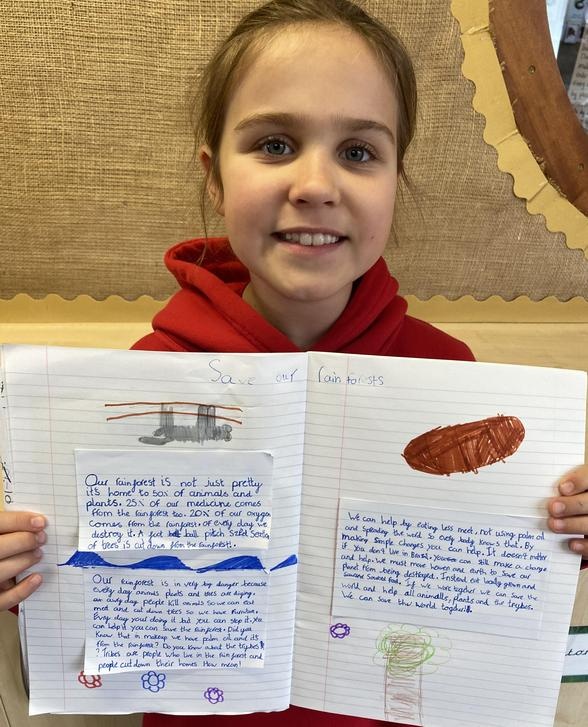 Save our rain forests
Our rainforest is not just pretty
it's home to 50% of animals and
plants. 25% of our medicine comes
from the rainforest too. 20% of our oxygen
comes from the rainforest. of every day we
destroy it. A foot ball pitch Sized
of trees is cut down from the rainforest.
Our rainforest is in very big danger because
every day animals plants and trees are dying.
every day people kill animals so we can eat
med and cut down trees so we have
Every day your doing it but you can stop it. You
can help if you can save the rainforest. Did you
Know that in makeup we have palm oil and it's
from the rainforest? Do you know about the tribes
? Tribes are people who live in the rainforest and
people cut down their homes. How mean!
We can help by eating less meet, not using palm oil
and spreding the word so every body knows that. By
making Simple changes you can help. It doesn't matter
if you don't live in Brazil. You can still make a change
and help. We must move heaven and earth to Save our
planet from being destroyed. Instead eat localy grown and
Source Soured food. If we work together we can save the
world and help all animals, plants and the trybes.
We can save the world together!